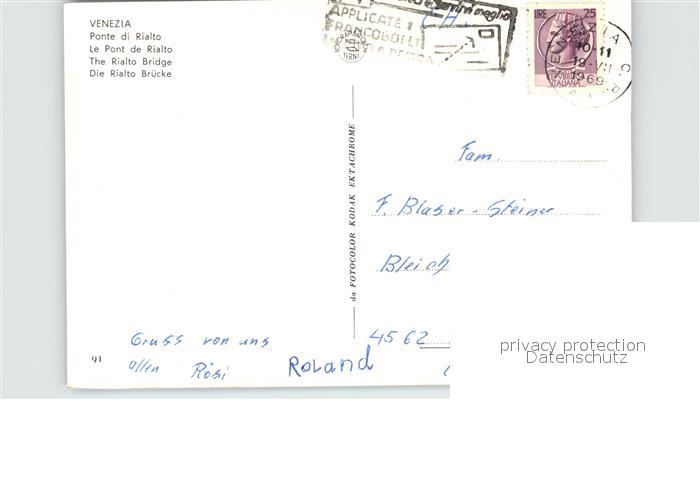 VENEZIA
Ponte di Rialto
Le Pont de Rialto
The Rialto Bridge
Die Rialto Brücke
Gruss von uns
allen Rösi Roland
91
da FOTOCOLOR KODAK EKTACHROME
CH.
APPLICATE I
FRANCOBOLLI
TERNI
LIRE 25
ITALIANA
10-11
19-VII
1969
Fam.
F. Blaser-Steiner
Bleich
4562
privacy protection
Datenschutz